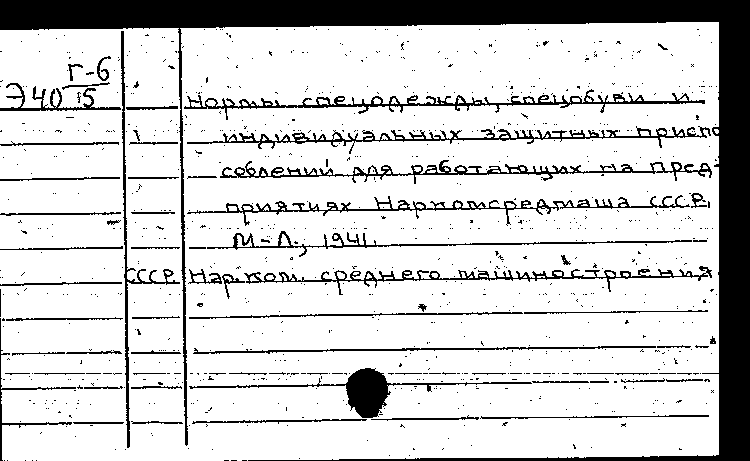 Э40 Г-6/15
Нормы спецодежды, спецобуви и
индивидуальных защитных приспо
соблений для работающих на пред-
приятиях Наркомсредмаша СССР,
М-Л., 1941.
СССР. Нар.ком. среднего машиностроения